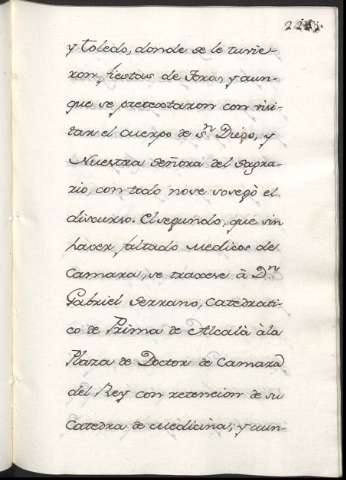 y Toledo, donde se le tuvie-
ron fiestas de Toros, y aun-
que se pretextaron con visi-
tar el cuerpo de S.n Diego, y
Nuestra Señora del Sagra-
rio, con todo no se sosegò el
discurso. El segundo, que sin
haver faltado Medicos de
Camara, se traxese à D.n
Gabriel Serrano, Catedrati-
co de Prima de Alcalà à la
Plaza de Doctor de Camara
del Rey con retencion de su
Catedra de Medicina, y aun-